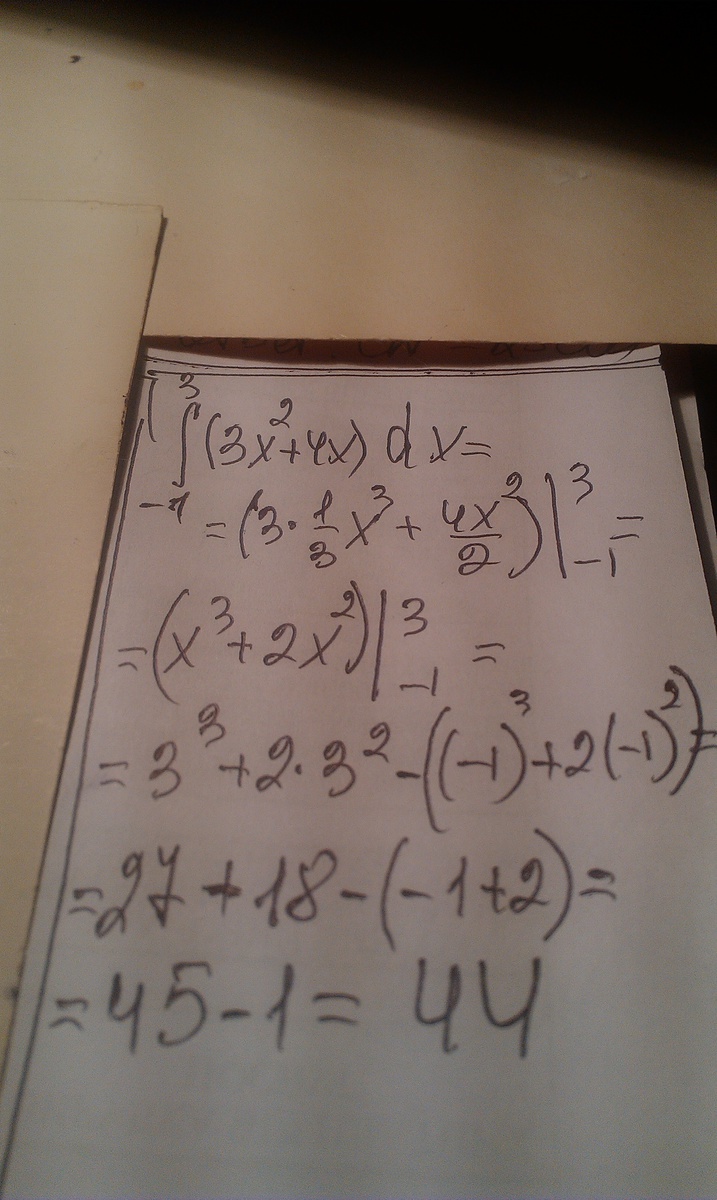 ∫₋₁³ (3x² + 4x) dx =
= (3 · 1/3 x³ + 4x²/2) |₋₁³ =
= (x³ + 2x²) |₋₁³ =
= 3³ + 2 · 3² - ((-1)³ + 2(-1)²) =
= 27 + 18 - (-1 + 2) =
= 45 - 1 = 44